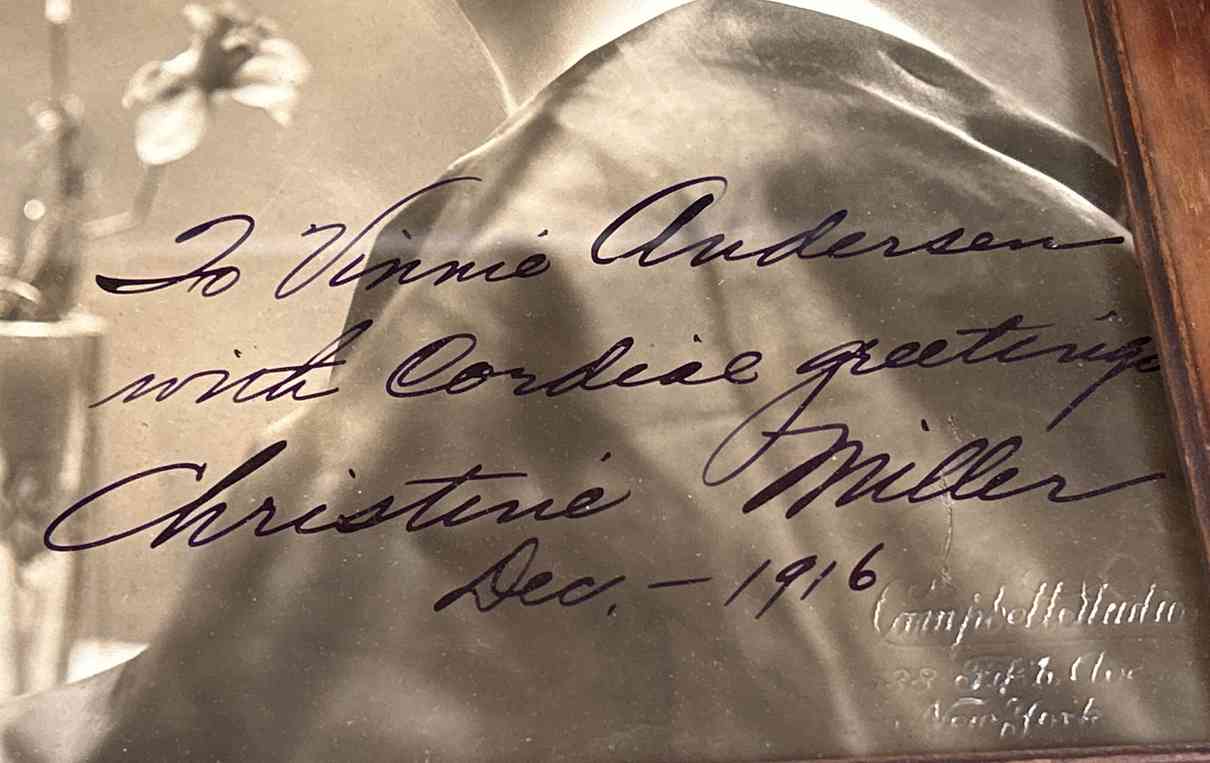 To Vinnie Andersen
with Cordial greetings
Christine Miller
Dec. - 1916
Campbell Studio
Fifth Ave
New York